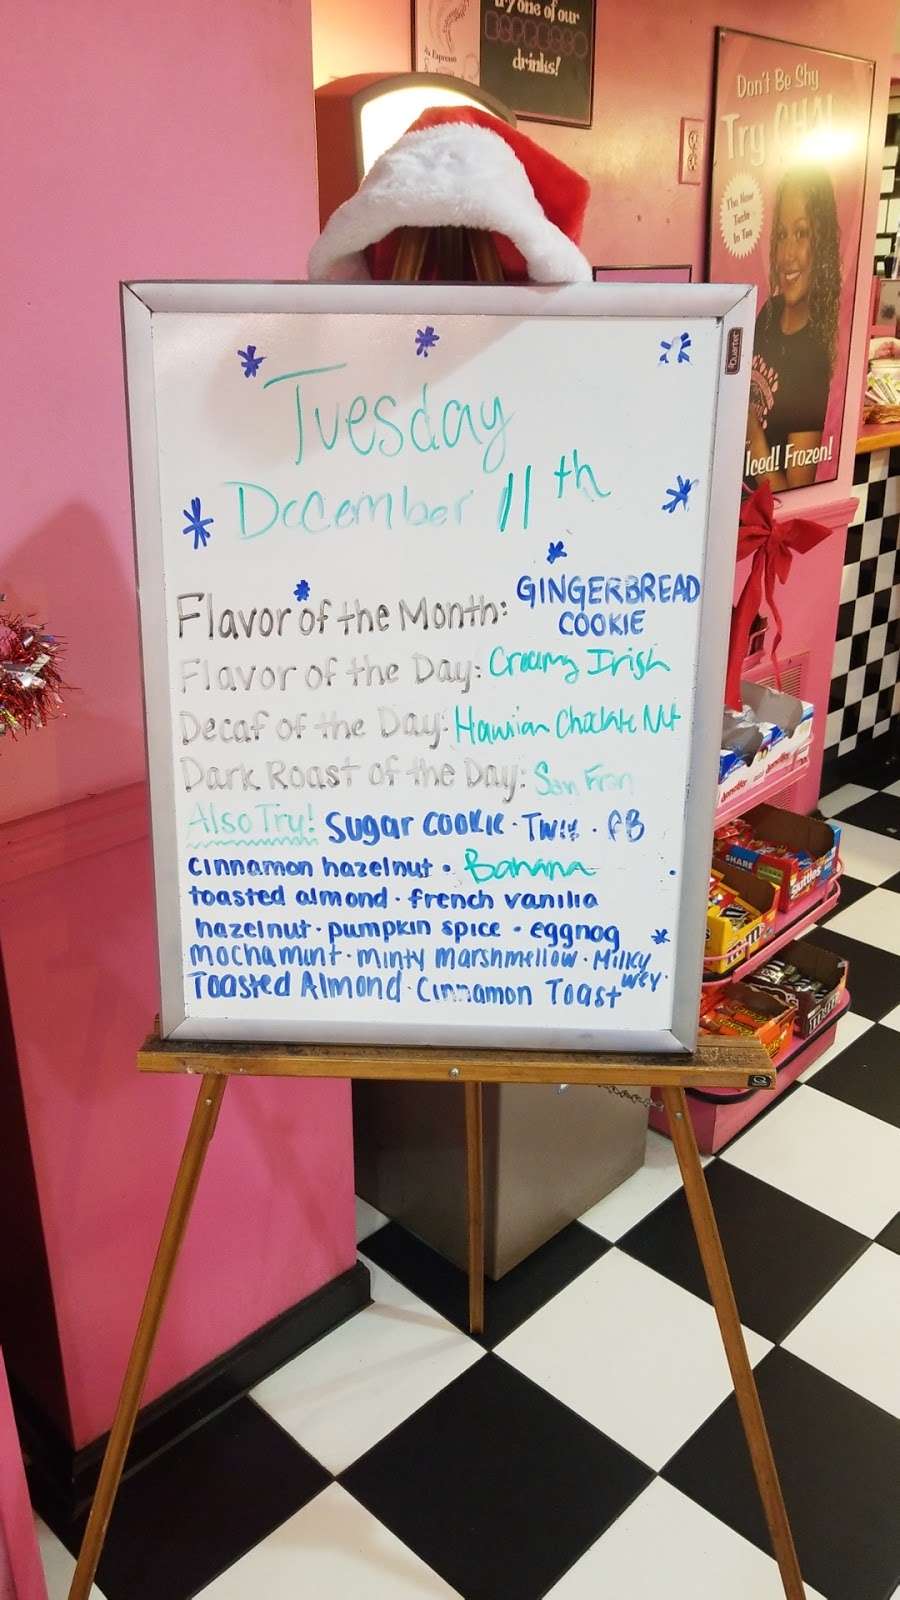 try one of our
ESPRESSO
drinks!
Espresso
Don't Be Shy
Try CHAI
The New
Taste
In Tea
Iced! Frozen!
Quartet
Tuesday
December 11th
Flavor of the Month: GINGERBREAD
COOKIE
Flavor of the Day: Creamy Irish
Decaf of the Day: Hawiian Choclate Nut
Dark Roast of the Day: San Fran
Also Try! Sugar cookie · Twix · PB
cinnamon hazelnut · Banana
toasted almond · french vanilla
hazelnut · pumpkin spice · eggnog
mochamint · minty marshmellow · Milky
wey ·
Toasted Almond · Cinnamon Toast
SHARE
Skittles
m&m
Q